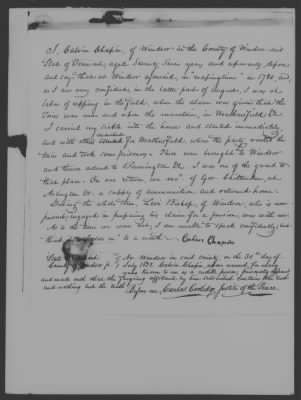 I, Calvin Chapin, of Windsor in the County of Windsor and
State of Vermont, aged Seventy Seven years and upwards, depose
and say that at Windsor aforesaid, in "reaping time" in 1780, and,
as I am very confident, in the latter part of August, I was at
labor reaping in the field, when the alarm was given that the
Tories were near and upon the mountain, in Weathersfield Vt.
I carried my sickle into the house and started immediately,
and with others marched to Weathersfield, where the party
and took some prisoners. These were brought to Windsor
and thence ordered to Bennington Vt. I was one of the guard to
that place. On our return we rec'd of Gov. Chittenden, at
Arlington Vt. a supply of ammunition and returned home.
During the whole time, Levi Bishop, of Windsor, who is now
engaged in preparing his claim for a pension, was with me.
As to the time we were out, I am unable to speak confidently; but
think a month.
Calvin Chapin
State of
County of Windsor At Windsor in said county, on the 30th day of
July Calvin Chapin, above named, for many
years known to me as a credible person, personally appeared
and made oath that the foregoing affidavit by him subscribed contains the truth
and nothing but the truth. Before me, Carlos Coolidge Justice of the Peace